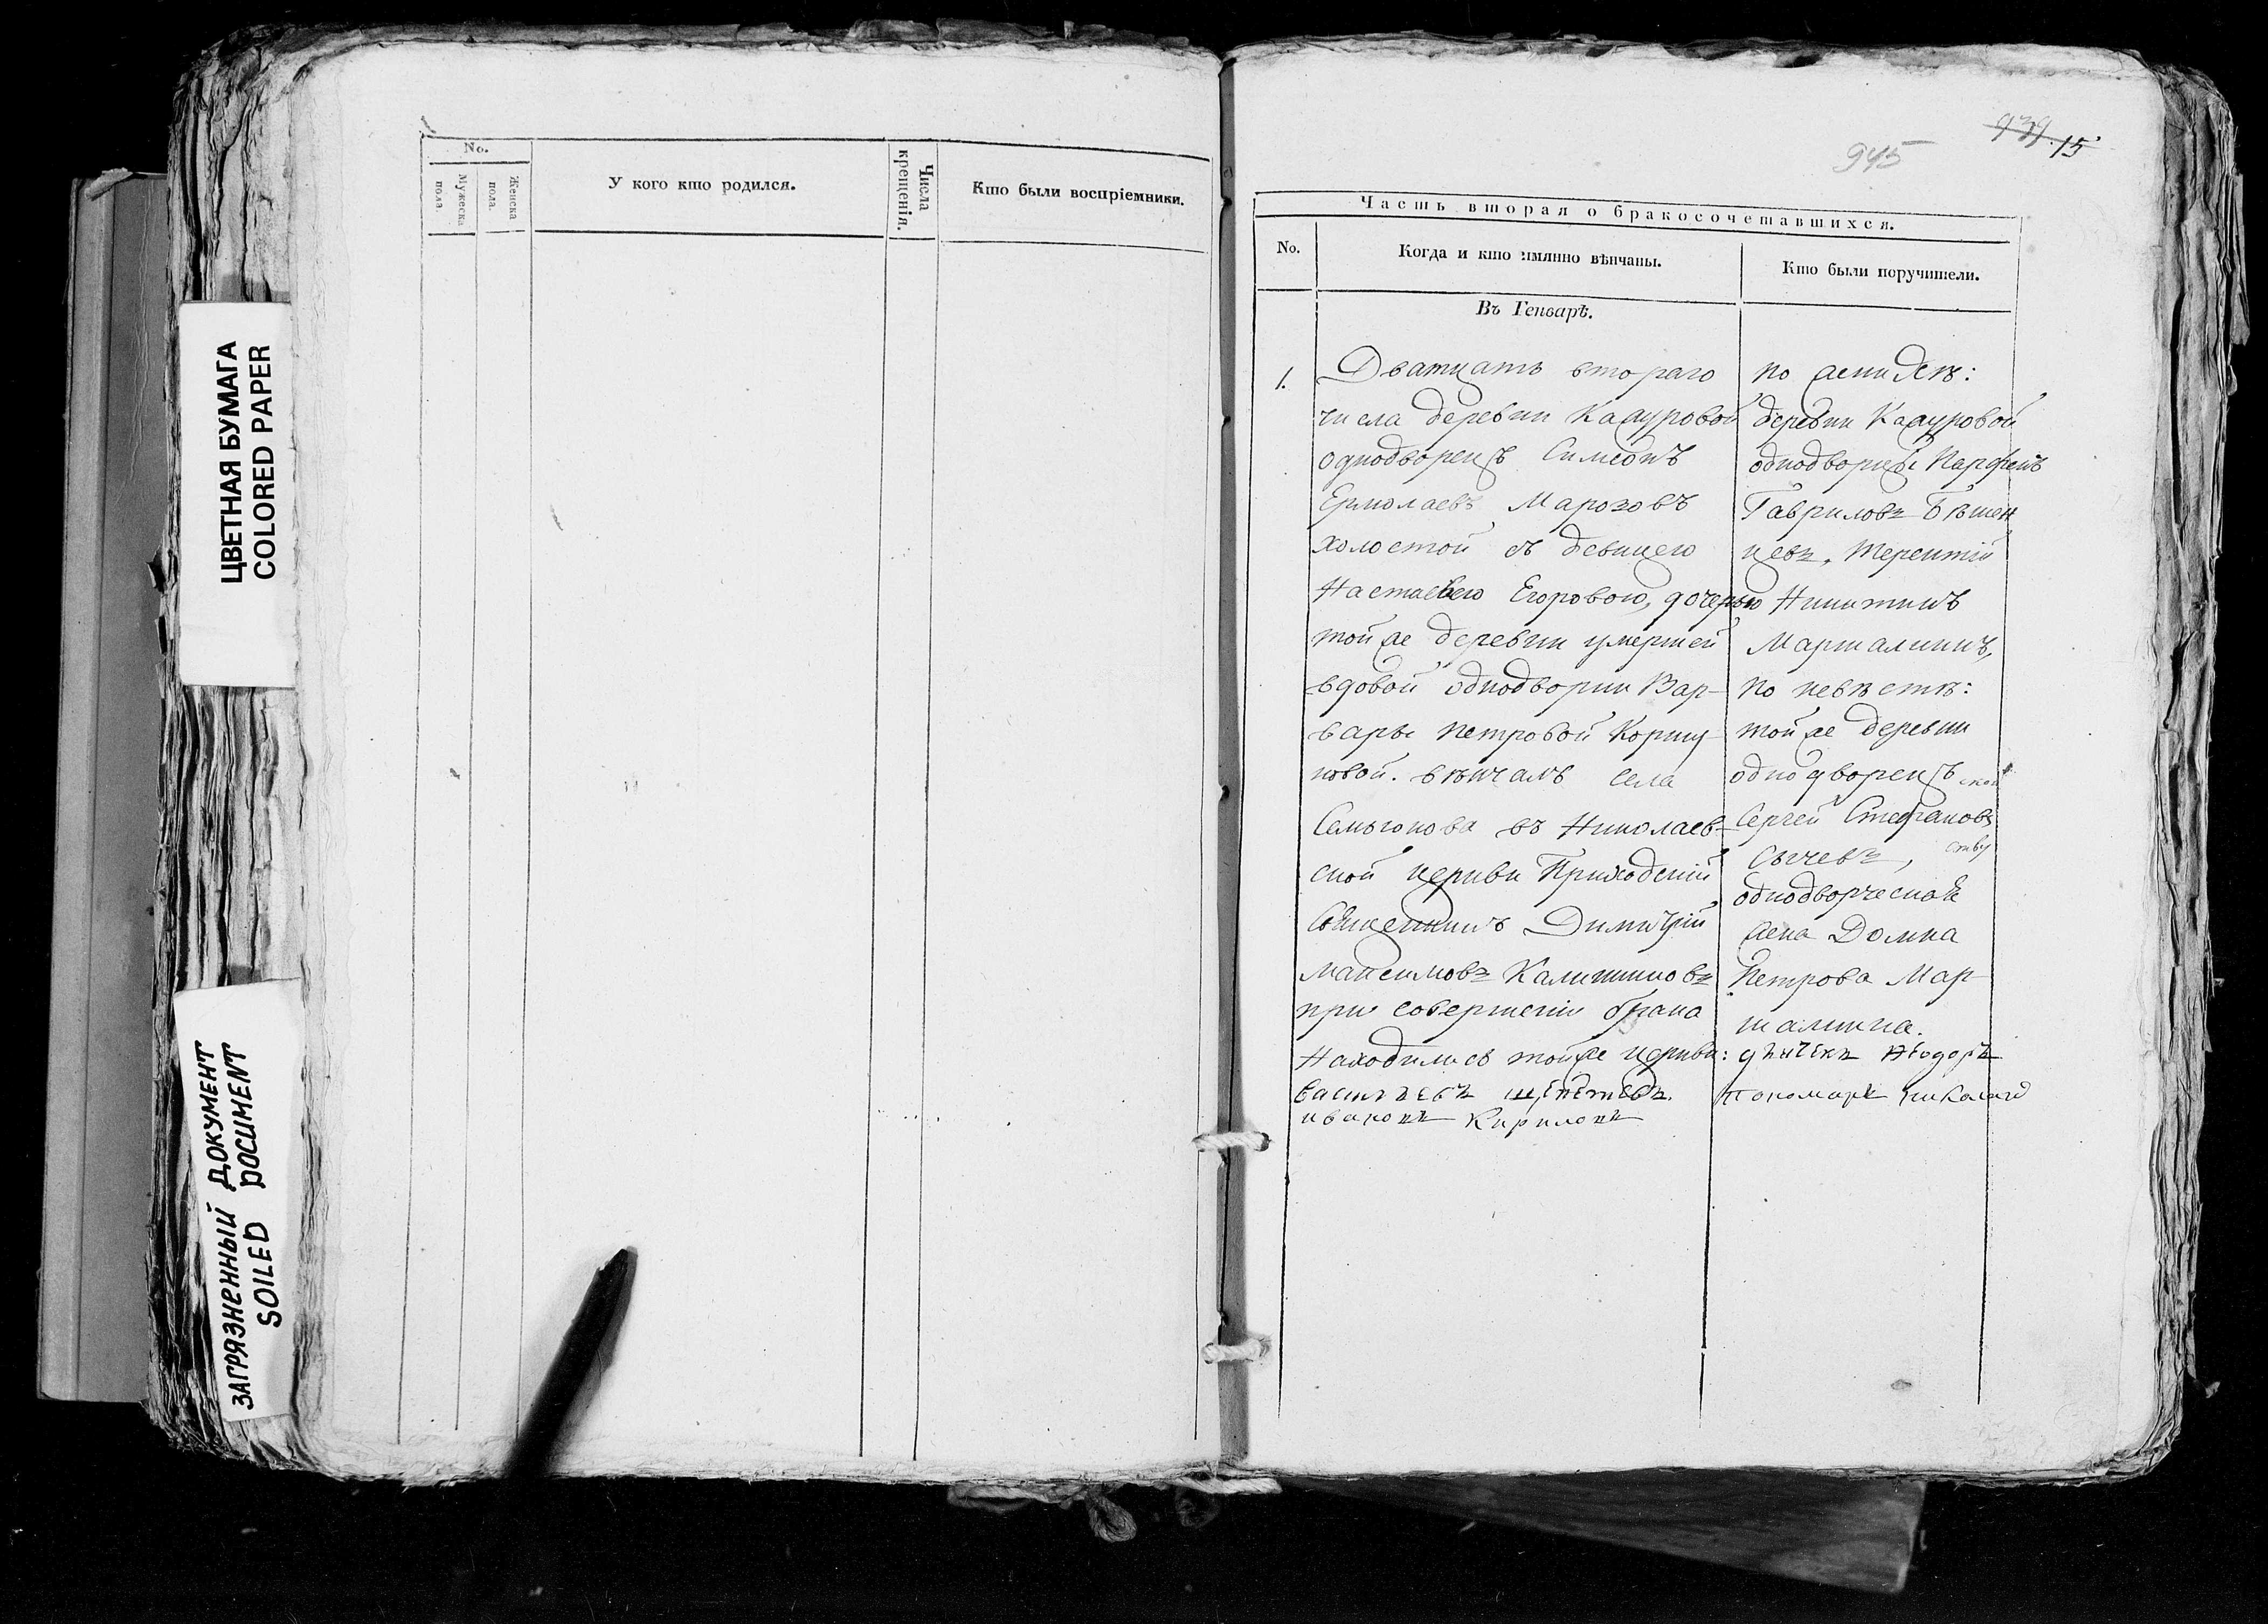 ЦВЕТНАЯ БУМАГА
COLORED PAPER
ЗАГРЯЗНЕННЫЙ ДОКУМЕНТ
SOILED DOCUMENT
No.
Мужеска пола.
Женска пола.
У кого кто родился.
Числа крещенія.
Кто были воспріемники.
939. 15
945
Часть вторая о бракосочетавшихся.
No.
Когда и кто имянно вѣнчаны.
Кто были поручители.
Въ Генварѣ.
1.
Дватцать втораго
числа деревни Кажуровой
однодворецъ Симеонъ
Ермолаевъ Марозовъ
холостой съ девицею
Настасьею Егоровою, дочерью
той же деревни умершей
вдовой однодворки Вар-
вары Петровой Коршу-
новой. вѣнчалъ села
Семьонова въ Николаев-
ской церкви Приходскій
Священникъ Димитрій
Максимовъ Калишниковъ
при совершеніи брака
Находились той же церкви:
Васильевъ
ивановъ Кириловъ
по женихѣ:
деревни Кажуровой
однодворцы Парфенъ
Гавриловъ Бѣшен
цевъ, Терентій
Никитинъ
Маршалкинъ,
по невѣстѣ:
той же деревни
однодворецъ
Сергей Стефановъ
Сычевъ,
однодворческая
жена Домна
Петрова Мар
шалкина.
дьячекъ Ѳеодоръ
Пономарь Николай